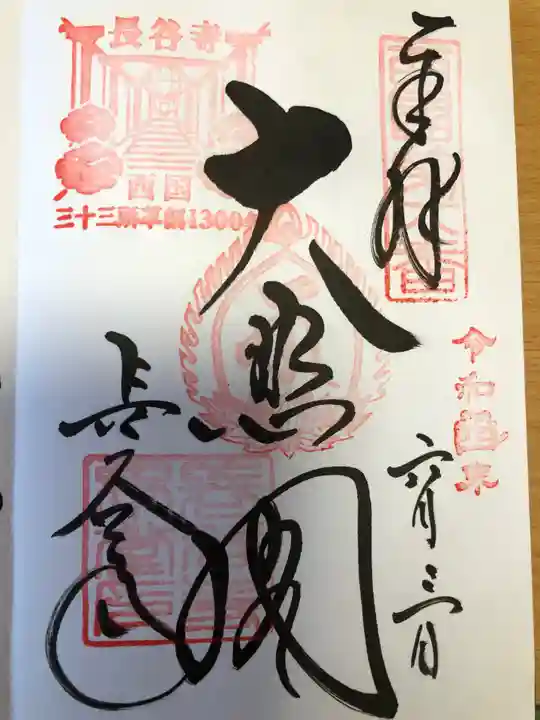 奉拝
令和元年
六月三日
大悲閣
長谷寺
長谷寺
西国
三十三所草創1300年